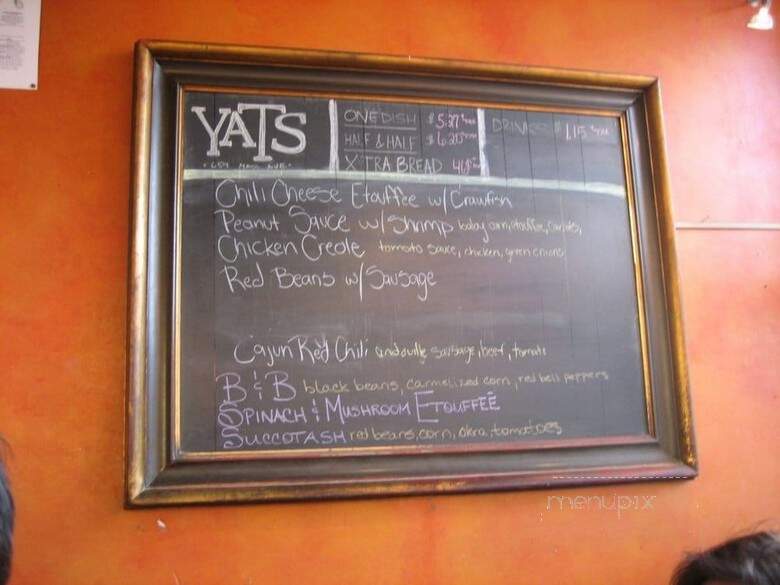 YATS
ONE DISH
HALF & HALF
X'TRA BREAD
DRINKS 1.15
Chili Cheese Etouffee w/ Crawfish
Peanut Sauce w/ Shrimp baby corn,
Chicken Creole tomato sauce, chicken, green onions
Red Beans w/ Sausage
Cajun Red Chili andouille sausage, beef, tomato
B & B black beans, carmelized corn, red bell peppers
SPINACH & MUSHROOM ETOUFFEE
SUCCOTASH red beans, corn, okra, tomatoes
menupix